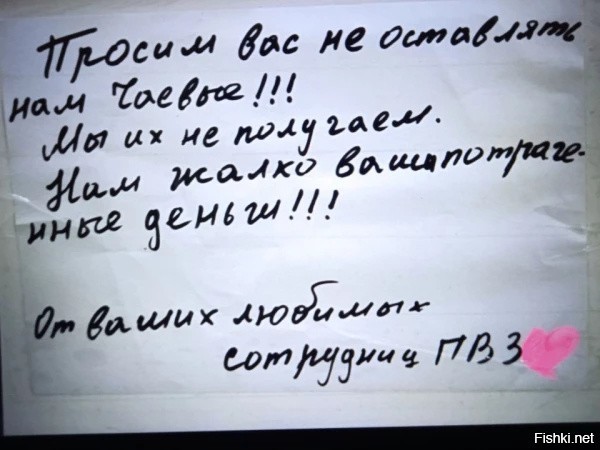 Просим вас не оставлять
нам Чаевые!!!
Мы их не получаем.
Нам жалко ваши потраче-
нные деньги!!!
От ваших любимых
сотрудниц ПВЗ
Fishki.net